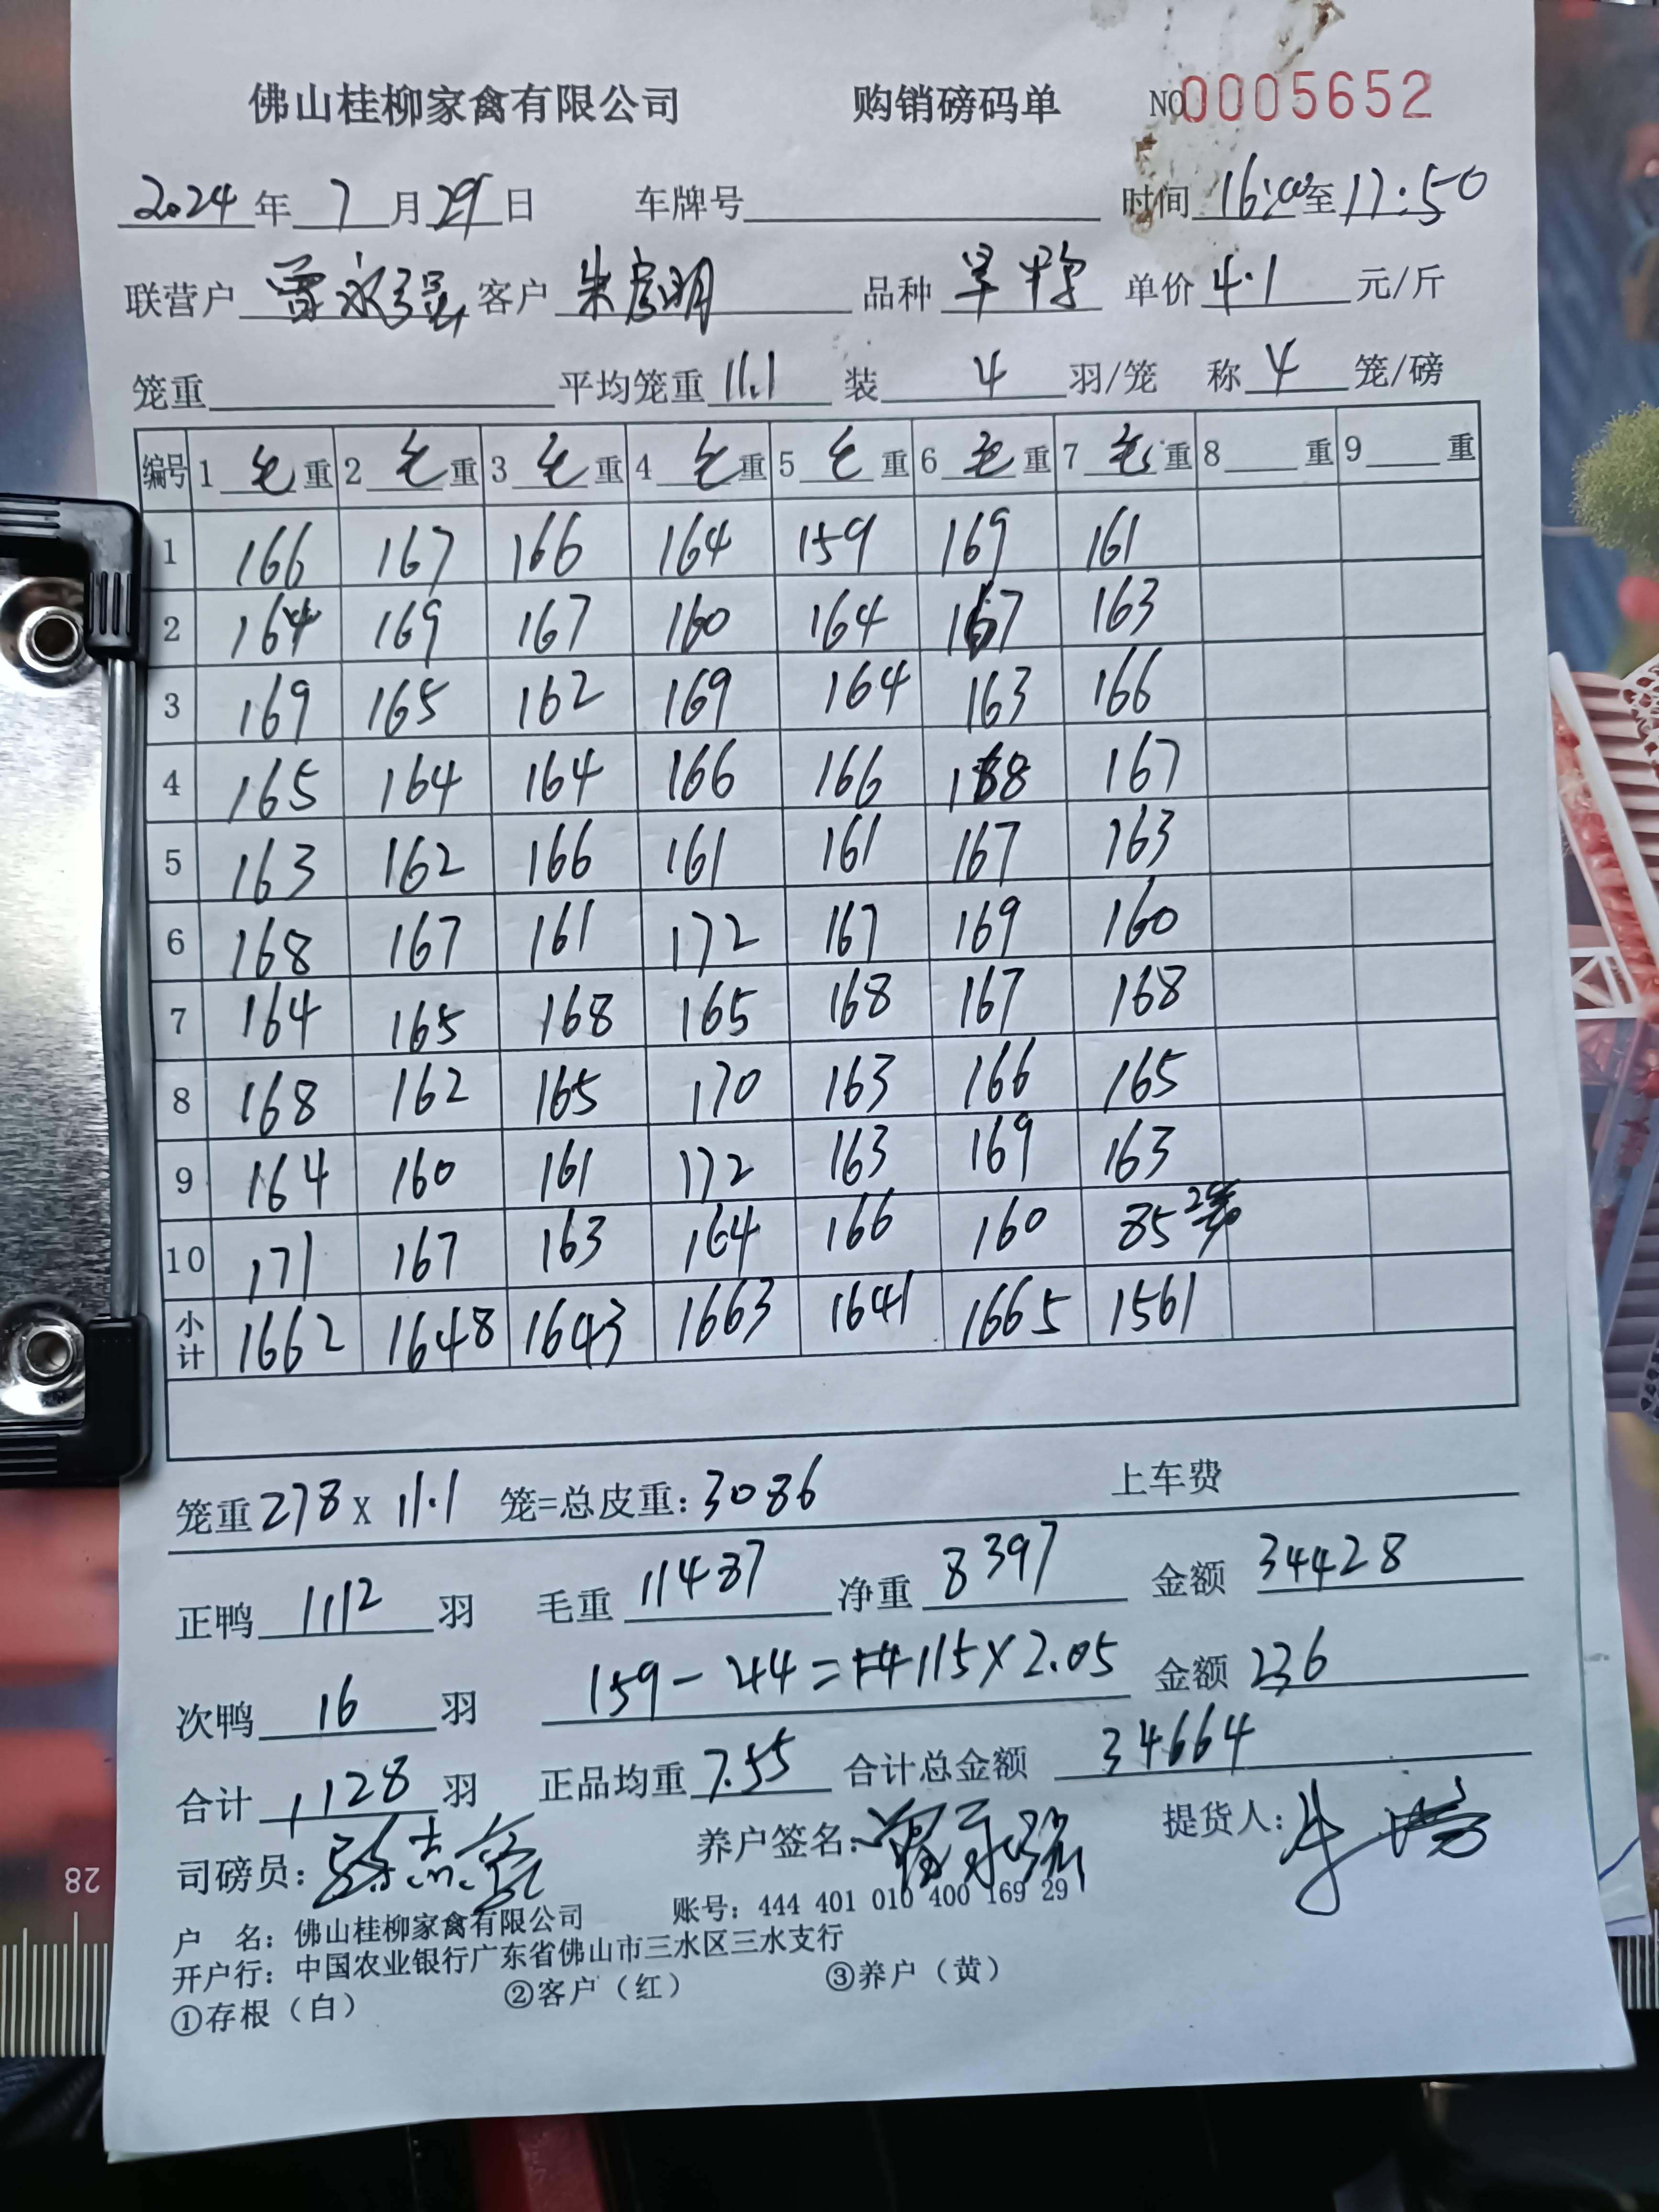 佛山桂柳家禽有限公司 购销磅码单 NO0005652
2024年7月29日 车牌号 时间16:00至17:50
联营户 曾永强 客户 朱 明 品种 单价4.1元/斤
笼重 平均笼重11.1 装4羽/笼 称4笼/磅
编号 1毛重 2毛重 3毛重 4毛重 5毛重 6毛重 7毛重 8重 9重
1 166 167 166 164 159 169 161
2 164 169 167 160 164 167 163
3 169 165 162 169 164 163 166
4 165 164 164 166 166 168 167
5 163 162 166 161 161 167 163
6 168 167 161 172 167 169 160
7 164 165 168 165 168 167 168
8 168 162 165 170 163 166 165
9 164 160 161 172 163 169 163
10 171 167 163 164 166 160 85 2笼
小计 1662 1648 1643 1663 1641 1665 1561
笼重278x11.1 笼=总皮重:3086 上车费
正鸭1112羽 毛重11487 净重8397 金额34428
次鸭16羽 159-44=115x2.05 金额236
合计1128羽 正品均重7.55 合计总金额34664
司磅员: 养户签名:曾永强 提货人:
户 名: 佛山桂柳家禽有限公司 账号: 444 401 010 400 169 29
开户行: 中国农业银行广东省佛山市三水区三水支行
①存根(白) ②客户(红) ③养户(黄)
28